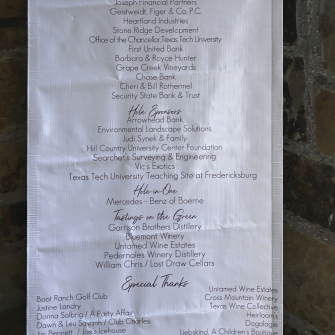 Joseph Financial Partners
Geistweidt, Figer & Co. P.C.
Heartland Industries
Stone Ridge Development
Office of the Chancellor, Texas Tech University
First United Bank
Barbara & Royce Hunter
Grape Creek Vineyards
Chase Bank
Cheri & Bill Rothermel
Security State Bank & Trust
Hole Sponsors
Arrowhead Bank
Environmental Landscape Solutions
Judi Synek & Family
Hill Country University Center Foundation
Searcher's Surveying & Engineering
Vic's Exotics
Texas Tech University Teaching Site at Fredericksburg
Hole-in-One
Mercedes - Benz of Boerne
Tastings on the Green
Garrison Brothers Distillery
Bluemont Winery
Untamed Wine Estates
Pedernales Winery Distillery
William Chris / Lost Draw Cellars
Special Thanks
Boot Ranch Golf Club
Justine Landry
Donna Solbrig / A Party Affair
Dawn & Lea Savanh / Club Charles
Jim Bennett / Joe's Icehouse
Untamed Wine Estates
Cross Mountain Winery
Texas Wine Collective
Heirloom's
Dogologie
Liebskind, A Children's Boutique